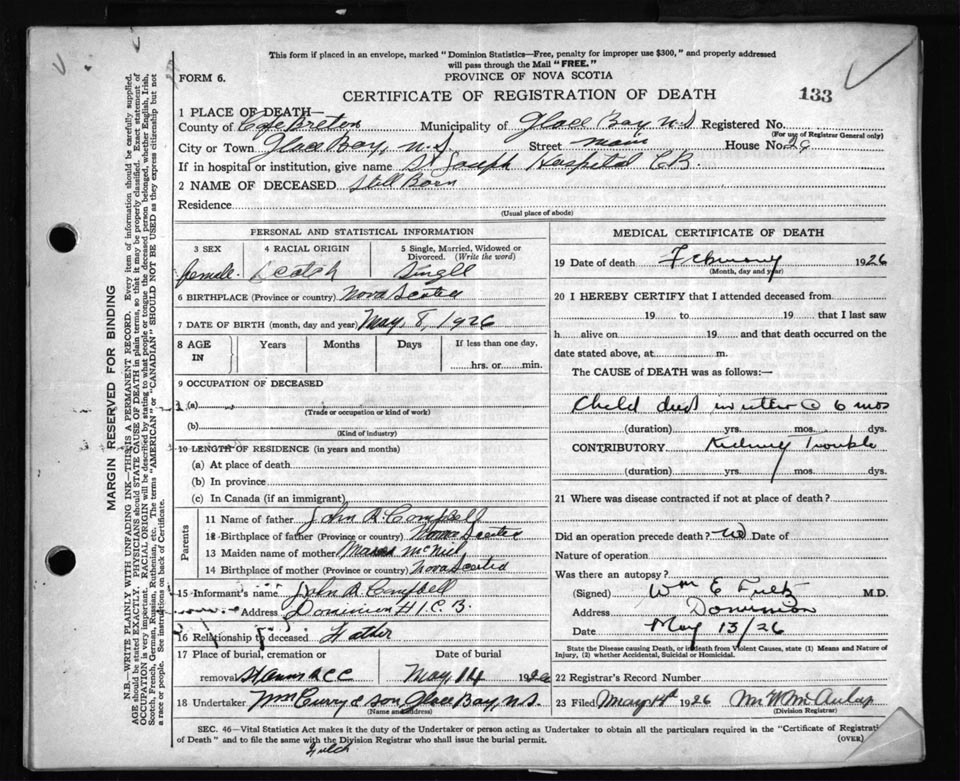 This form if placed in an envelope, marked "Dominion Statistics—Free, penalty for improper use $300," and properly addressed
will pass through the Mail "FREE."
FORM 6.
PROVINCE OF NOVA SCOTIA
CERTIFICATE OF REGISTRATION OF DEATH
133
1 PLACE OF DEATH—
County of Cape Breton Municipality of Glace Bay N.S Registered No.
(For use of Registrar General only)
City or Town Glace Bay, N.S. Street Main House No. 26
If in hospital or institution, give name St Joseph Hospital C.B.
2 NAME OF DECEASED Still Born
Residence
(Usual place of abode)
PERSONAL AND STATISTICAL INFORMATION
3 SEX 4 RACIAL ORIGIN 5 Single, Married, Widowed or
Divorced. (Write the word)
female. Scotch Single
6 BIRTHPLACE (Province or country) Nova Scotia
7 DATE OF BIRTH (month, day and year) May, 8, 1926
8 AGE IN Years Months Days If less than one day,
hrs. or min.
9 OCCUPATION OF DECEASED
(a)
(Trade or occupation or kind of work)
(b)
(Kind of industry)
10 LENGTH OF RESIDENCE (in years and months)
(a) At place of death
(b) In province
(c) In Canada (if an immigrant)
Parents
11 Name of father John A. Campbell
12 Birthplace of father (Province or country) Nova Scotia
13 Maiden name of mother McNeil
14 Birthplace of mother (Province or country) Nova Scotia
15 Informant's name John A. Campbell
Address Dominion #1 C.B.
16 Relationship to deceased Father
17 Place of burial, cremation or Date of burial
removal May 14 1926
18 Undertaker McCurry & son Glace Bay, N.S.
(Name and address)
MEDICAL CERTIFICATE OF DEATH
19 Date of death February 1926
(Month, day and year)
20 I HEREBY CERTIFY that I attended deceased from
19 to 19 that I last saw
h alive on 19 and that death occurred on the
date stated above, at m.
The CAUSE of DEATH was as follows:—
Child died in utero @ 6 mos
(duration) yrs. mos. dys.
CONTRIBUTORY Kidney Trouble
(duration) yrs. mos. dys.
21 Where was disease contracted if not at place of death?
Did an operation precede death? no Date of
Nature of operation
Was there an autopsy?
(Signed) Wm E Fultz M.D.
Address Dominion
Date May 13/26
State the Disease causing Death, or in death from Violent Causes, state (1) Means and Nature of
Injury, (2) whether Accidental, Suicidal or Homicidal.
22 Registrar's Record Number
23 Filed May 14th 1926
(Division Registrar)
SEC. 46—Vital Statistics Act makes it the duty of the Undertaker or person acting as Undertaker to obtain all the particulars required in the "Certificate of Registration
of Death" and to file the same with the Division Registrar who shall issue the burial permit.
(OVER)
MARGIN RESERVED FOR BINDING
N.B.—WRITE PLAINLY WITH UNFADING INK—THIS IS A PERMANENT RECORD. Every item of information should be carefully supplied.
AGE should be stated EXACTLY. PHYSICIANS should STATE CAUSE OF DEATH in plain terms, so that it may be properly classified. Exact statement of
OCCUPATION is very important. RACIAL ORIGIN will be described by stating to what people or tongue the deceased person belonged, whether English, Irish,
Scotch, French, German, Russian, Ruthenian, etc. The terms "AMERICAN" or "CANADIAN" SHOULD NOT BE USED as they express citizenship but not
a race or people. See instructions on back of Certificate.